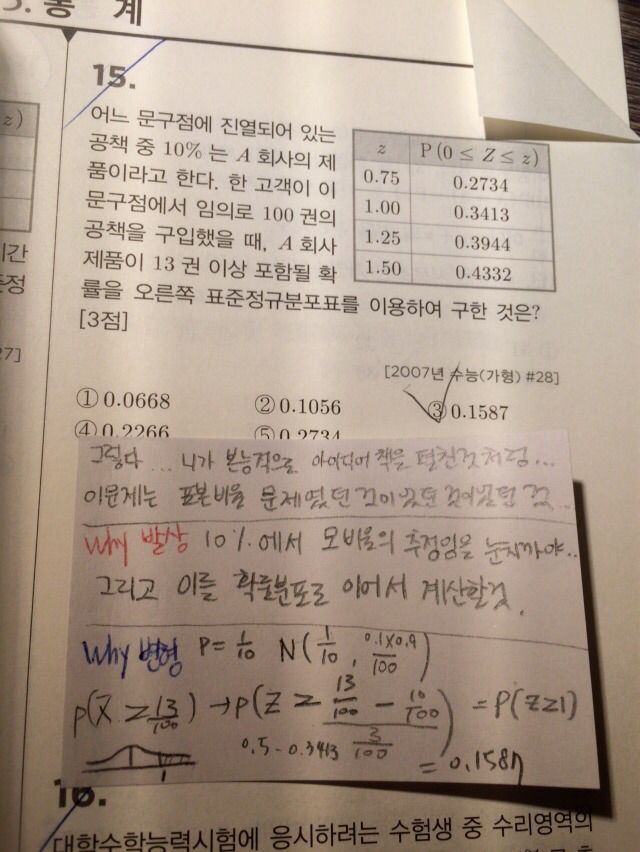 5. 통 계
15.
어느 문구점에 진열되어 있는
공책 중 10% 는 A 회사의 제
품이라고 한다. 한 고객이 이
문구점에서 임의로 100 권의
공책을 구입했을 때, A 회사
제품이 13 권 이상 포함될 확
률을 오른쪽 표준정규분포표를 이용하여 구한 것은?
[3점]
z P(0 ≤ Z ≤ z)
0.75 0.2734
1.00 0.3413
1.25 0.3944
1.50 0.4332
[2007년 수능(가형) #28]
① 0.0668 ② 0.1056 ③ 0.1587
④ 0.2266 ⑤ 0.2734
그렇다... 니가 본능적으로 아이디어 책을 펼친것처럼...
이문제는 표본비율 문제였던 것이었던 것이었던 것..
Why 발상 10%에서 모비율의 추정임을 눈치까야..
그리고 이를 확률분포로 이어서 계산할것.
Why 변형 P= 1/10 N(1/10, 0.1×0.9/100)
P(X ≥ 13/100) → P(Z ≥ (13/100 - 10/100) / (3/100)) = P(Z≥1)
0.5-0.3413 = 0.1587
16.
대학수학능력시험에 응시하려는 수험생 중 수리영역의
z)
시간
추정
27]